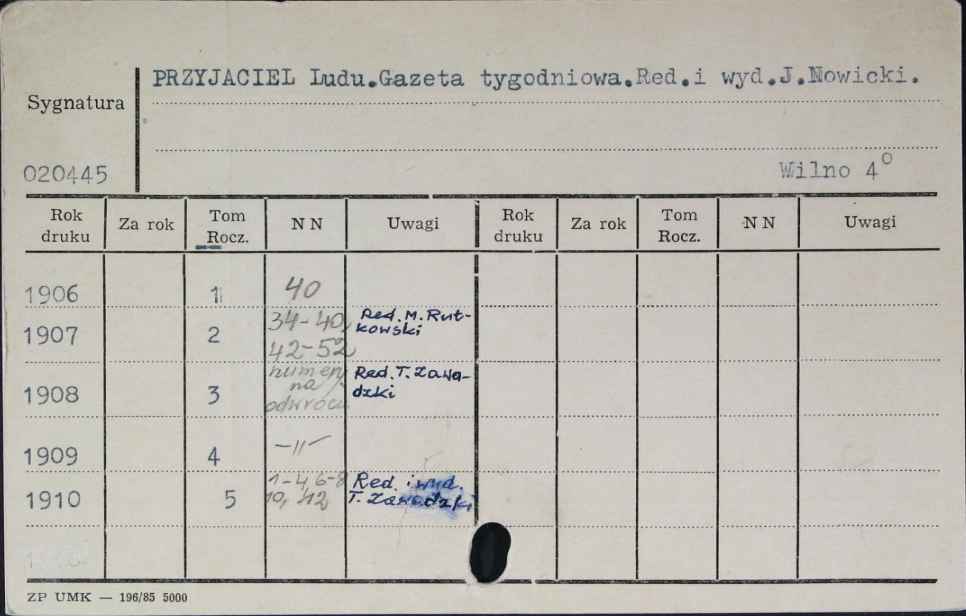 PRZYJACIEL Ludu.Gazeta tygodniowa.Red.i wyd.J.Nowicki.
Sygnatura
020445
Wilno 4°
Rok druku Za rok Tom Rocz. N N Uwagi Rok druku Za rok Tom Rocz. N N Uwagi
1906 1 40
1907 2 34-40, 42-52 Red. M. Rutkowski
1908 3 numery na odwrocie Red. T. Zawadzki
1909 4 -11-
1910 5 1-4, 6-8 10, 12 Red. i wyd. T. Zawadzki
ZP UMK — 196/85 5000